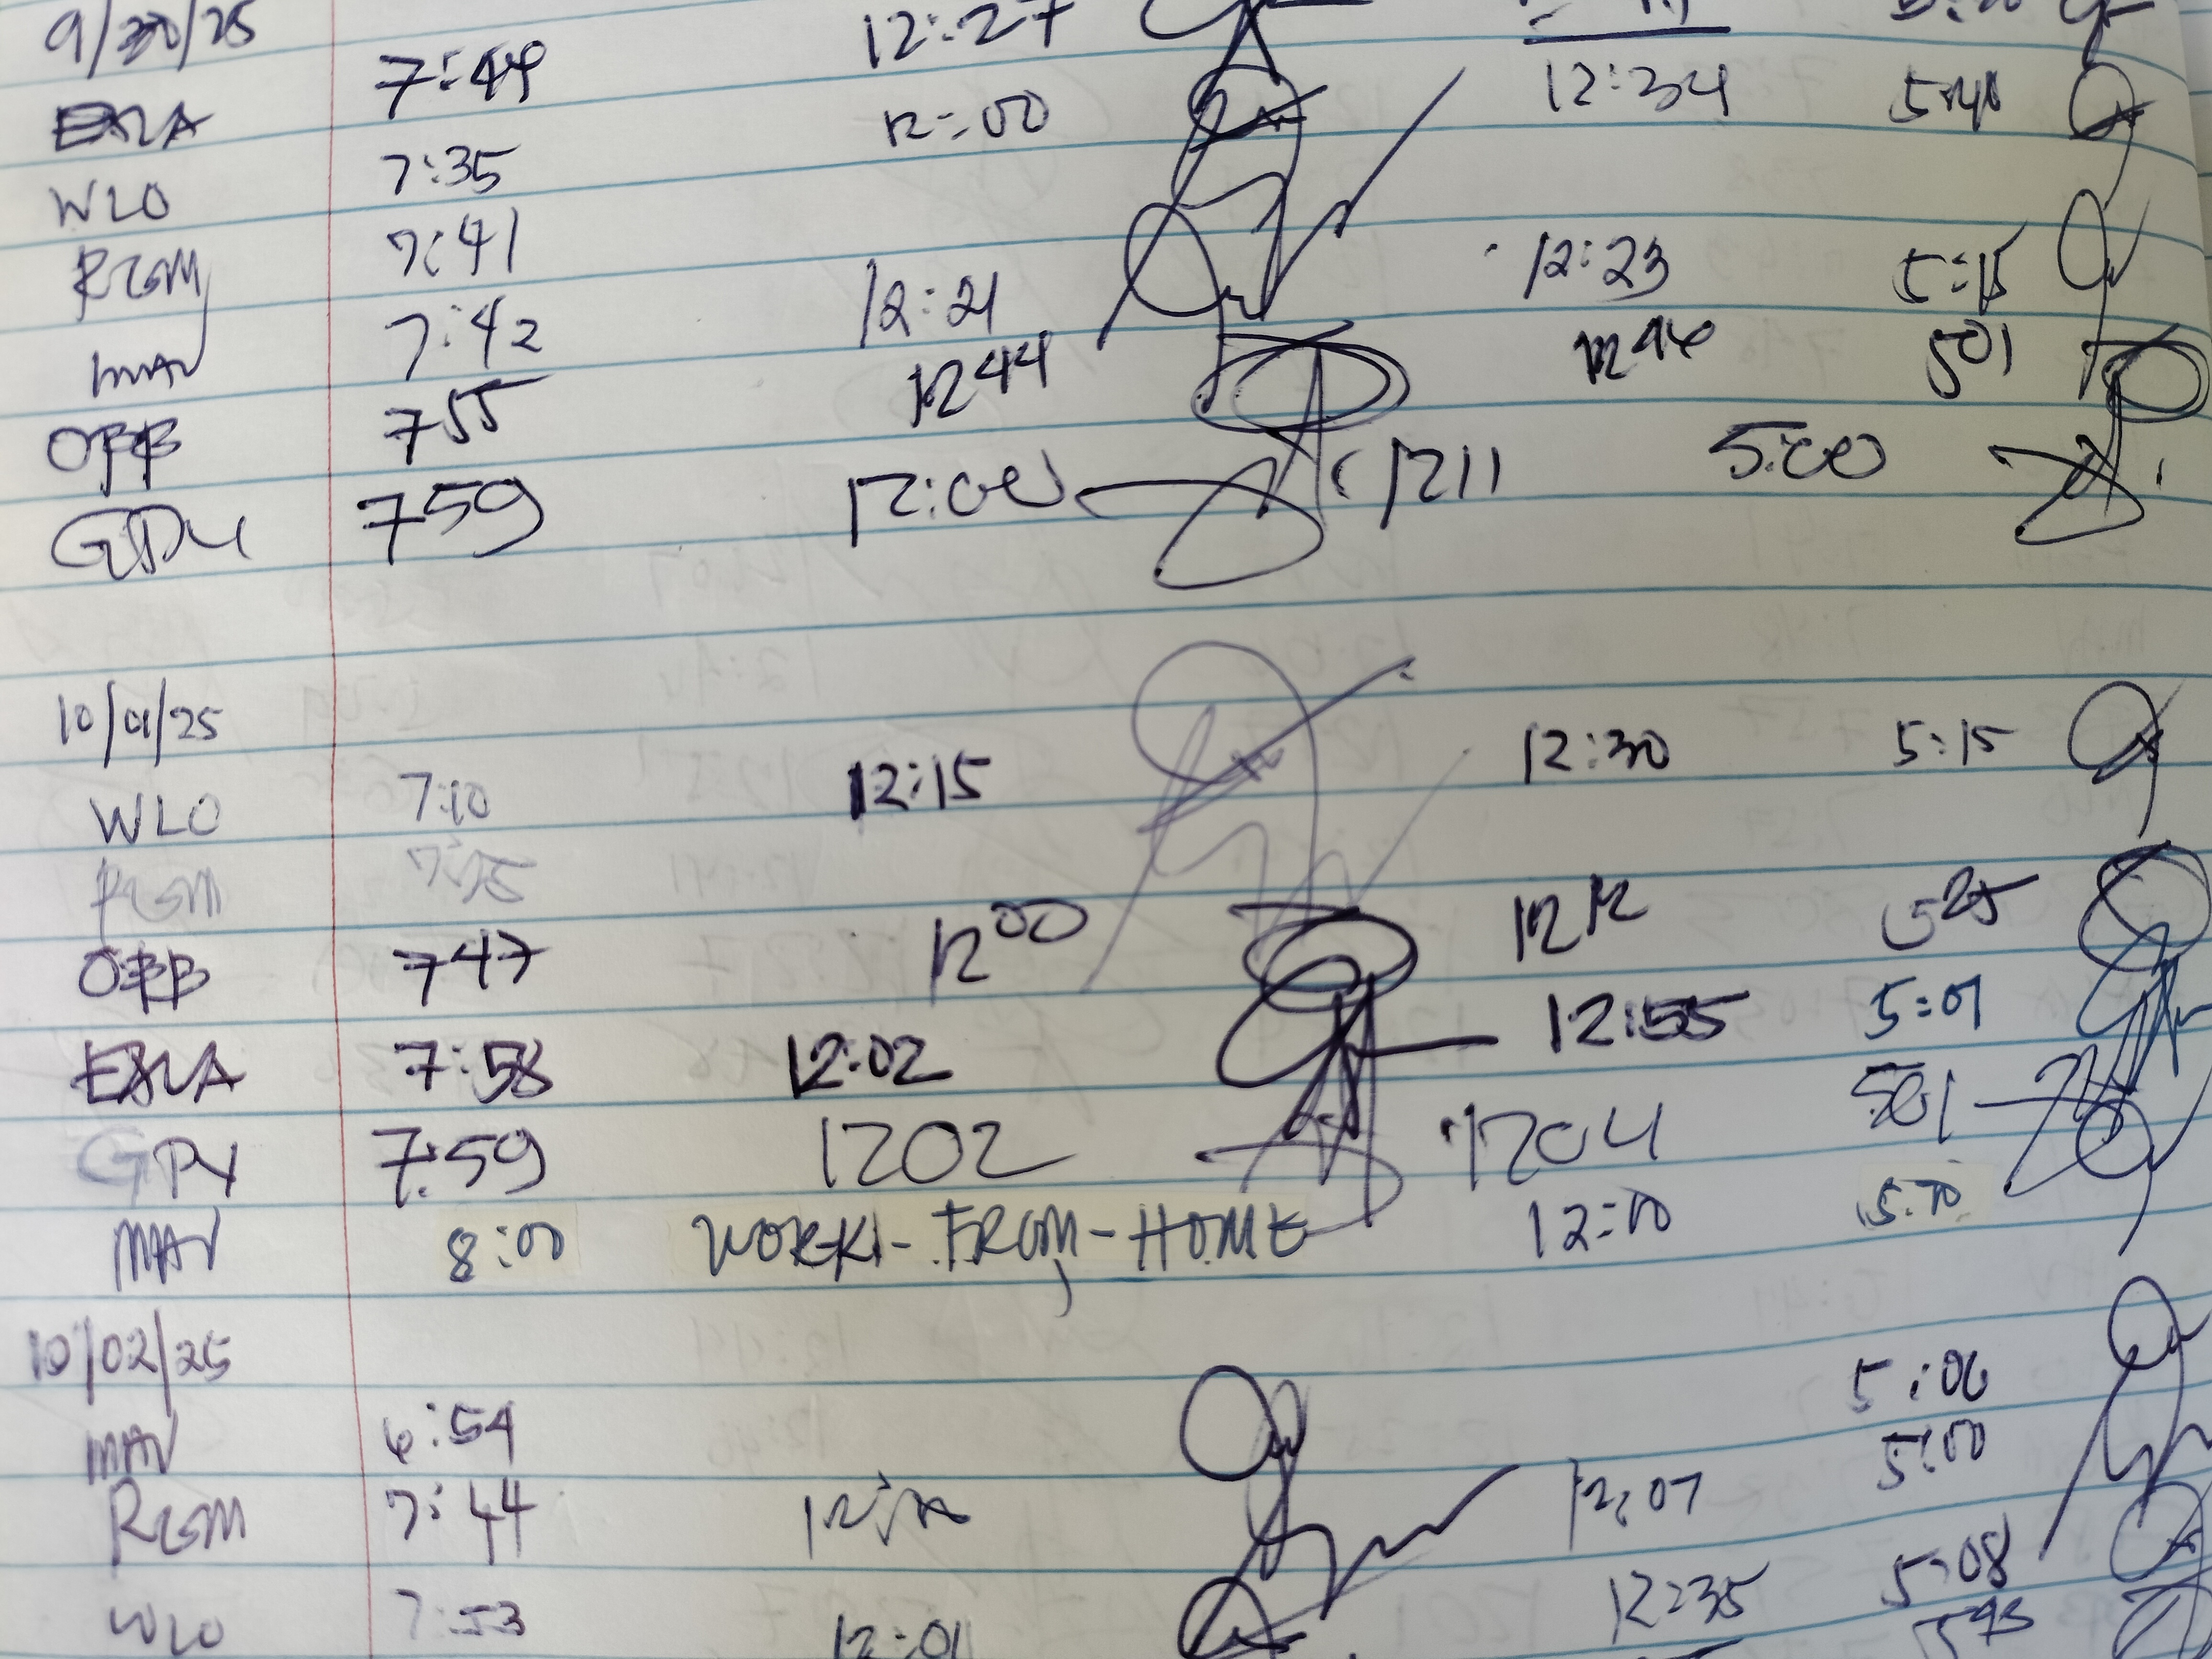 9/30/25
7:49 12:27
ERLA 12:00 12:34 5:40
7:35
WLO
7:41
RGM 12:21 12:23 5:15
7:42
MAV 12 44 501
OBB 7 55
GPY 7 59 12:00 1211 5:00
10/01/25
WLO 7:10 12:15 12:30 5:15
RGM
OBB 7 47 12 00 12 12 5 25
7:58 12:02 12:55 5:01
GPY 7:59 1202 1204 501
MAV 8:00 WORK - FROM - HOME 12:00 5:00
10/02/25
MAV 6:54 5:06
RGM 7:44 12:07 5:00
WLO 7:53 12:01 12:35 5:08